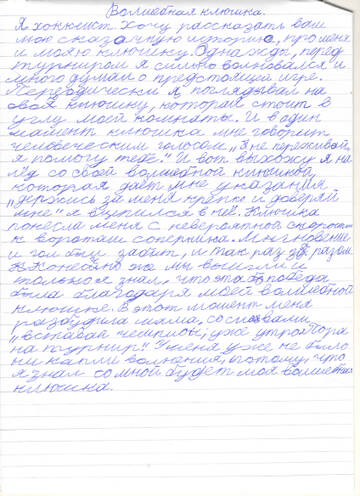 Волшебная клюшка.
Я хоккеист. Хочу рассказать вам
мою сказочную историю, про меня
и мою клюшку. Однажды, перед
турниром я сильно волновался и
много думал о предстоящей игре.
Переодически я поглядывал на
свою клюшку, которая стоит в
углу моей комнаты. И в один
момент клюшка мне говорит
человеческим голосом „Я не переживай,
я помогу тебе." И вот выхожу я на
лёд со своей волшебной клюшкой,
которая даёт мне указания
„держись за меня крепко и доверяй
мне" я вцепился в неё. Клюшка
понесла меня с невероятной скоростью
к воротам соперника. Мгновение
и гол был забит, и так раз за разом
Конечно же мы выиграли
только я знал, что эта победа
была благодаря моей волшебной
клюшке. В этот момент меня
разбудила мама, со словами
„вставай чемпион, уже утро. Пора
на турнир." У меня уже не было
ни капли волнения, потому, что
я знал со мной будет моя волшебная
клюшка.